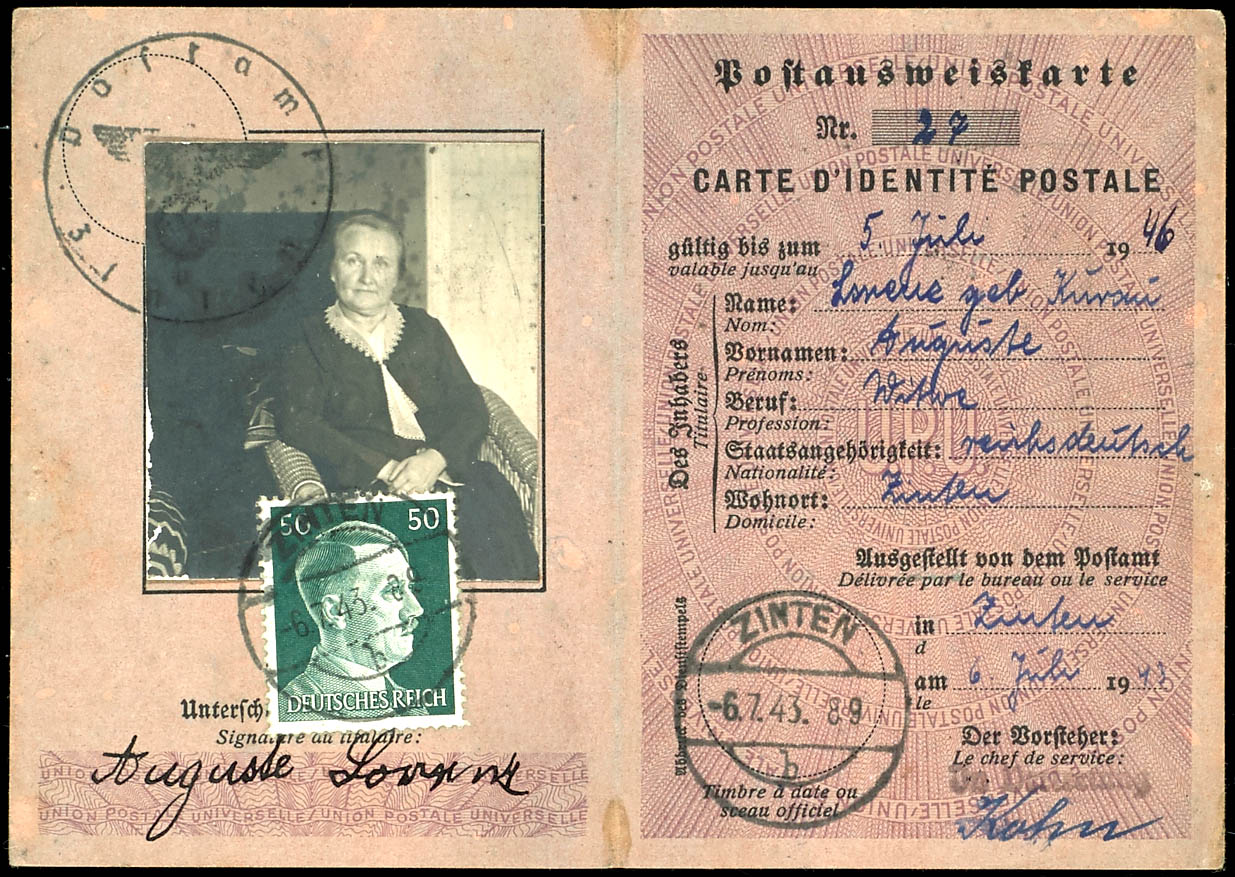 Postam
50 50
ZINTEN
-6.7.43. 8-9
b
DEUTSCHES REICH
Untersch
Signature du titulaire:
Auguste Lorenz
UNION POSTALE UNIVERSELLE/UNION POSTALE UNIVERSELLE
Postausweiskarte
Nr. 27
CARTE D'IDENTITÉ POSTALE
gültig bis zum 5. Juli 1946
valable jusqu'au
Des Inhabers
Titulaire
Name: geb
Nom:
Vornamen: Auguste
Prénoms:
Beruf: Witwe
Profession:
Staatsangehörigkeit: reichsdeutsch
Nationalité:
Wohnort: Zinten
Domicile:
UPU
Ausgestellt von dem Postamt
Délivrée par le bureau ou le service
in Zinten
d
am 6 Juli 1943
le
ZINTEN
-6.7.43. 8-9
b
Timbre à date ou
sceau officiel
Der Vorsteher:
Le chef de service: